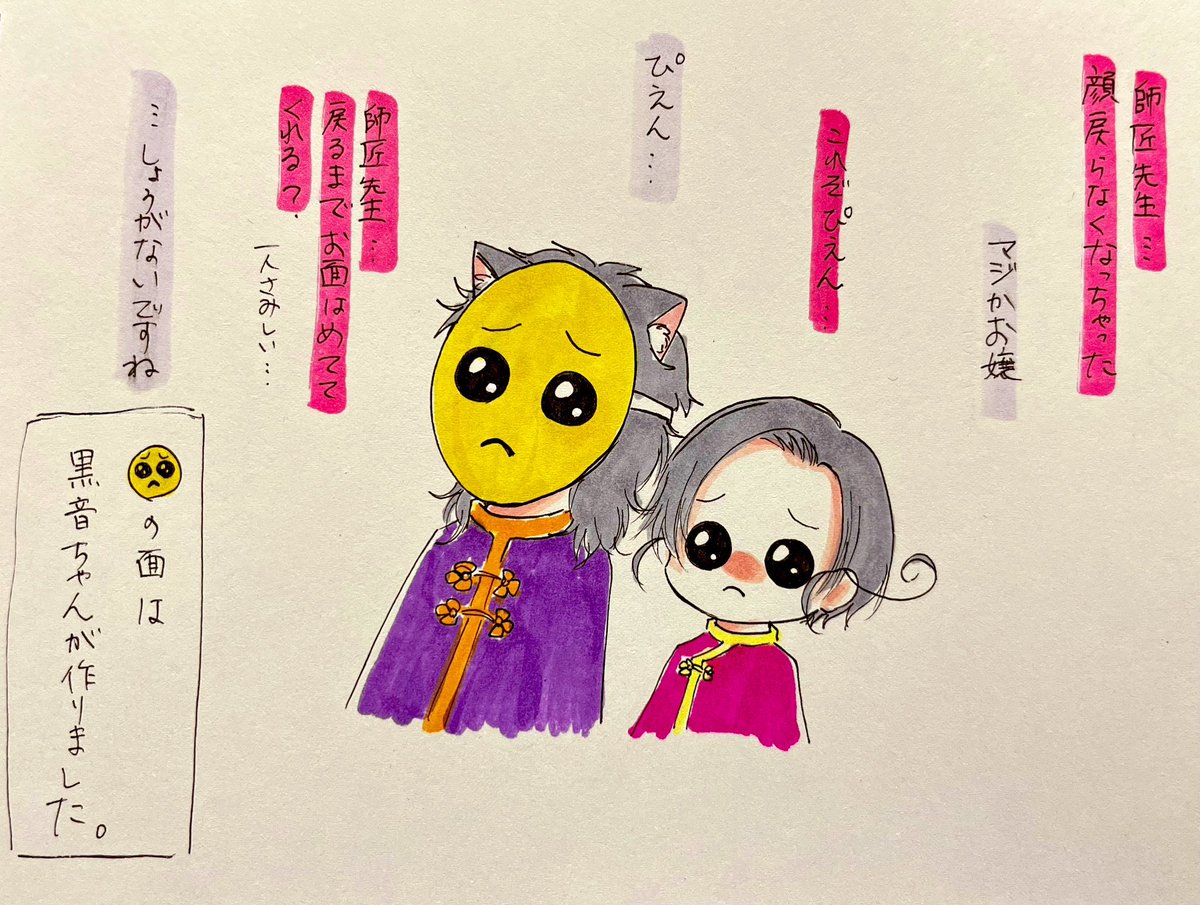 師匠先生…
顔戻らなくなっちゃった
マジかお嬢
これぞぴえん…
ぴえん…
師匠先生…
戻るまでお面はめてて
くれる？
一人さみしい…
…しょうがないですね
の面は
黒音ちゃんが作りました。